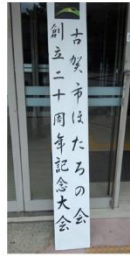 古賀市ほたるの会
創立二十周年記念大会